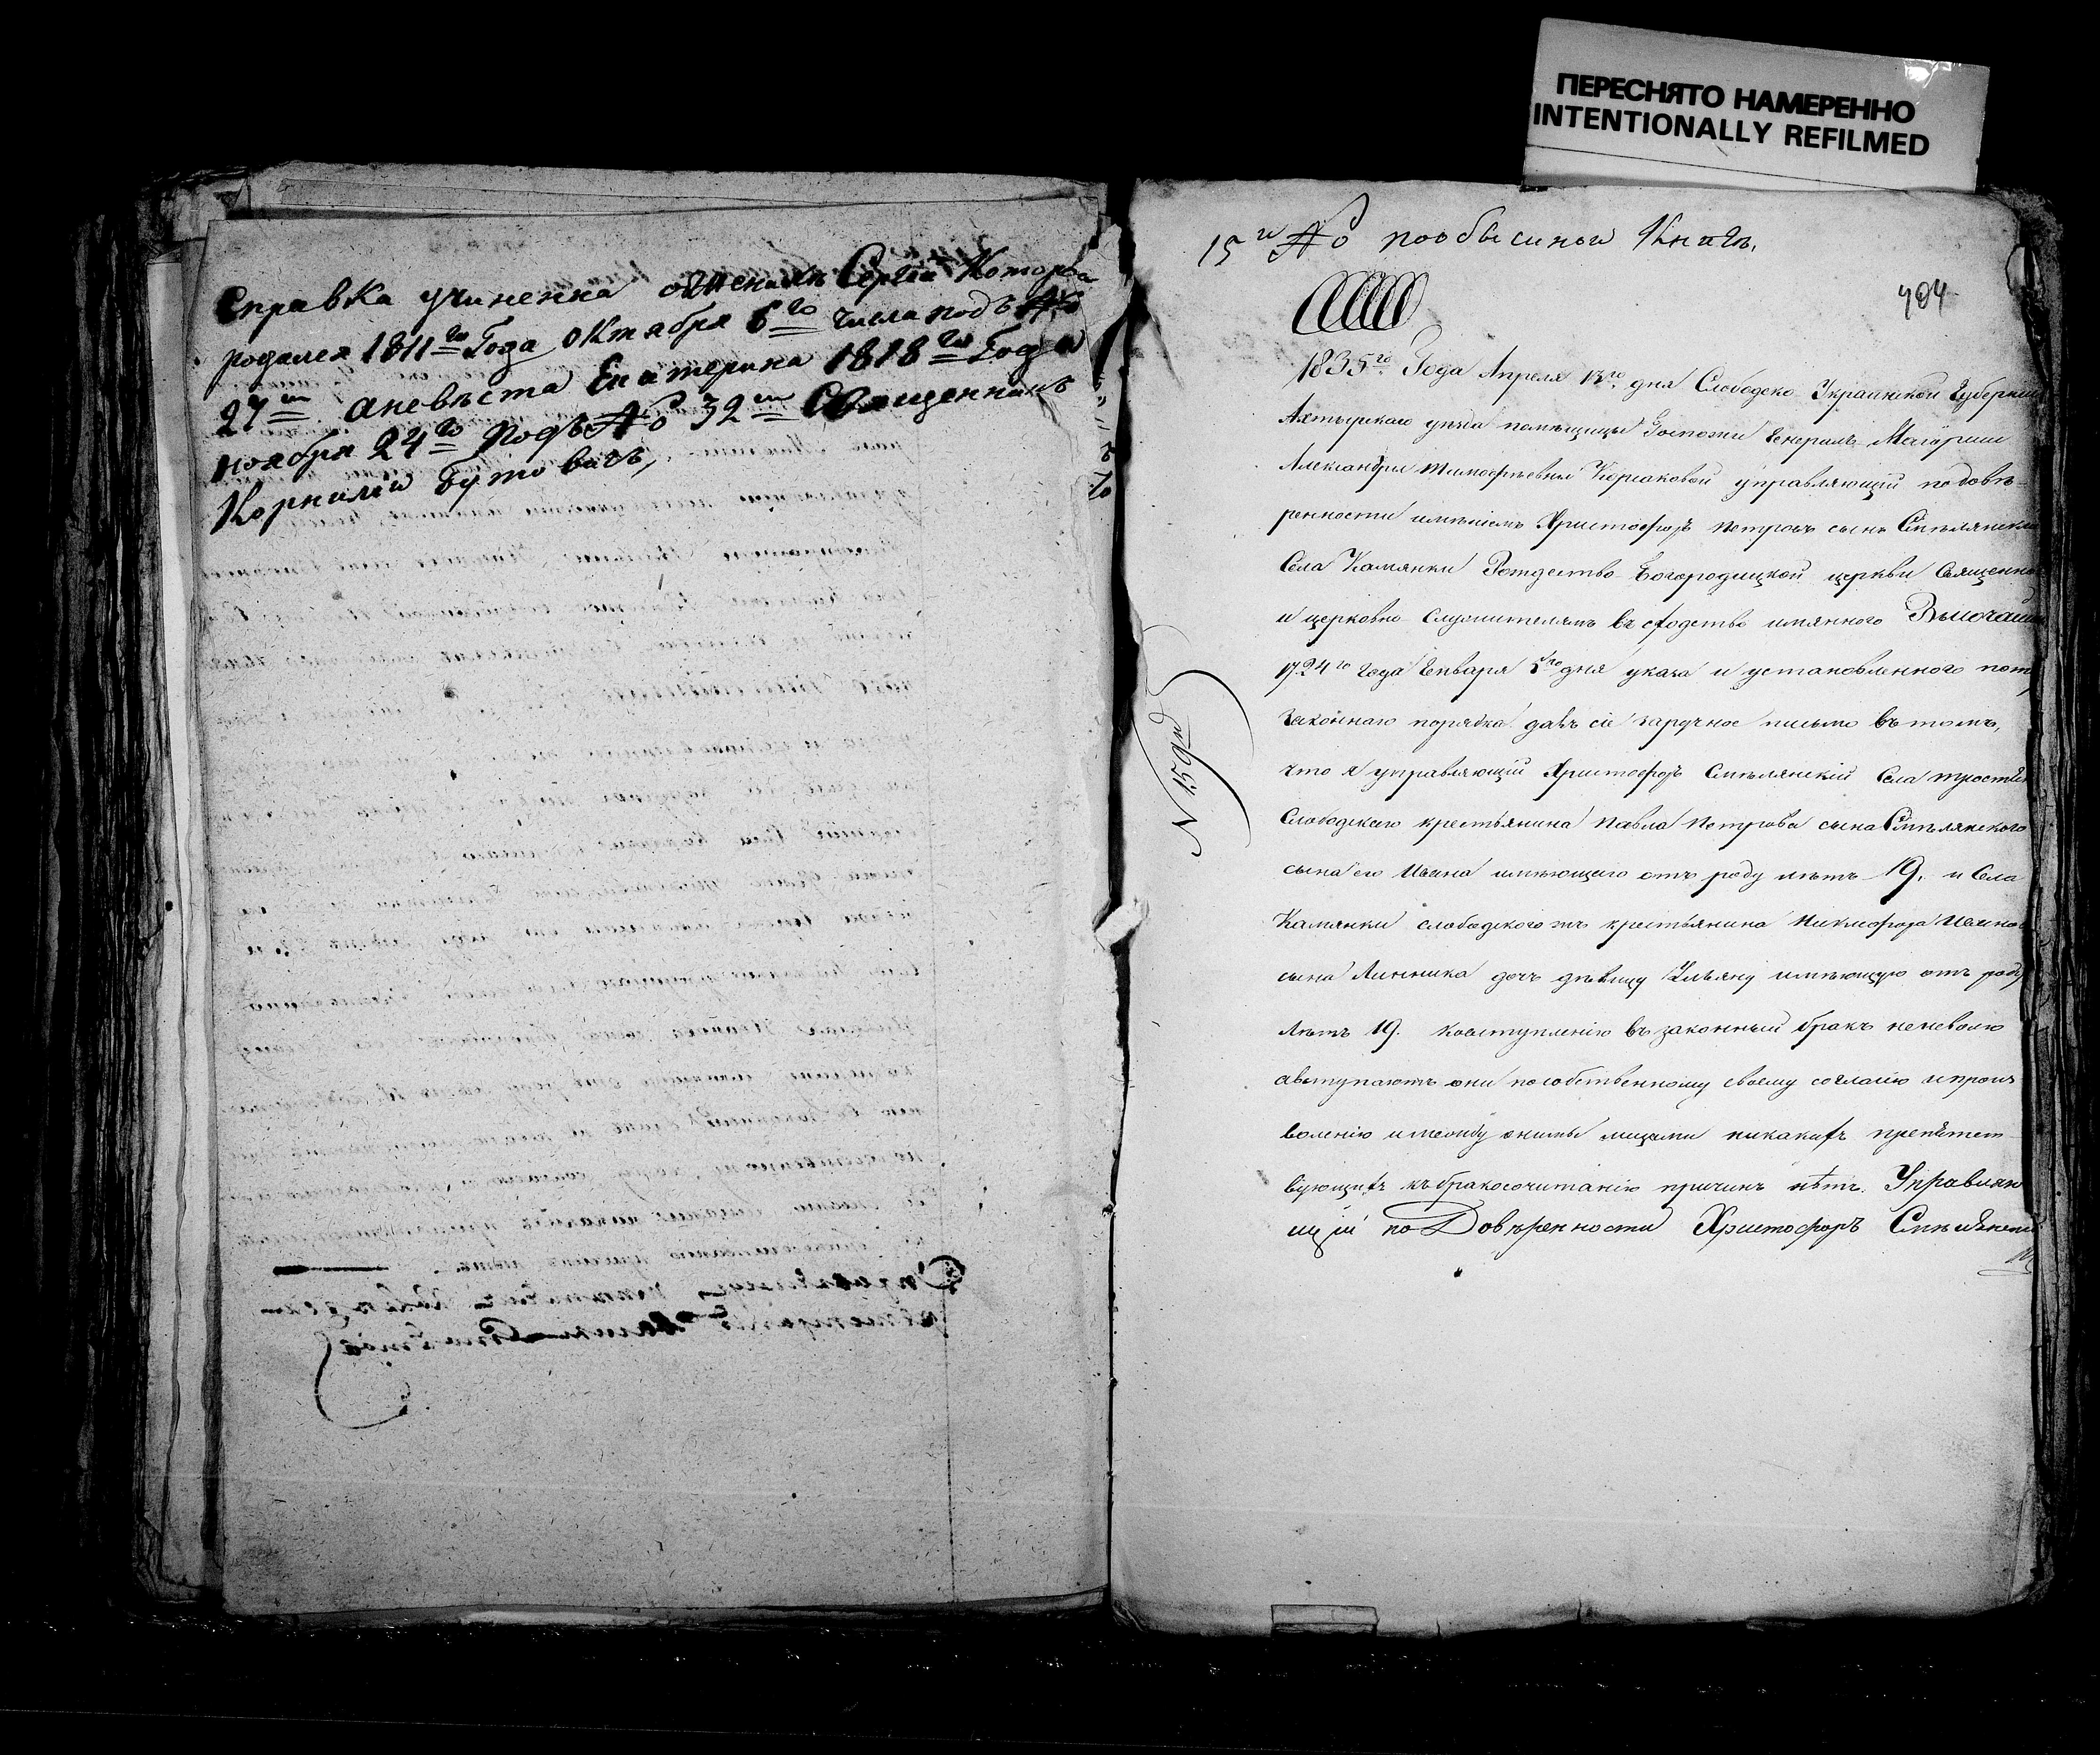 ПЕРЕСНЯТО НАМЕРЕННО
INTENTIONALLY REFILMED
Справка учиненна оженихѣ Сергіи Которы
родился 1811го Года Октября 6го числа подъ №
27м аневѣста Екатерина 1818го Года
ноября 24го подъ № 32м Священникъ
Корнилій Бутовичъ,
15й № пообысной Книгѣ.
404
1835го Года Апреля дня Слободско Украинской Губерніи
Ахтырскаго уѣзда помѣщицы Госпожи Генералъ Маіорши
Александры Тимофѣевны Корсаковой управляющій по довѣ-
ренности имѣніемъ Христофоръ Петровъ сынъ Смѣлянскій
Села Камянки Рождество-Богородицкой церкви Священно
и церковно-служителямъ въ сходство имяннаго Высочайш
1724го Года Генваря 5го дня указа и установленного пом
законнаго порядка далъ сіе заручное письмо въ томъ,
что я управляющій Христофоръ Смѣлянскій Села тростян
Слободскаго крестьянина Павла Петрова сына Смѣлянскаго
сына его Ивана имѣющаго отъ роду лѣтъ 19. и Села
Камянки слободского жъ крестьянина Никифора Ивано
сына Линника дочь дѣвицу Ульяну имѣющую отъ роду
лѣтъ 19. ковступленію въ законный бракъ неневолю
авступаютъ они пособственному своему согласію ипроиз
воленію имежду оними лицами никакихъ препятст-
вующихъ къ бракосочитанію причинъ нѣтъ. Управляю
щій по Довѣренности Христофоръ Смѣлянскій
N 159й